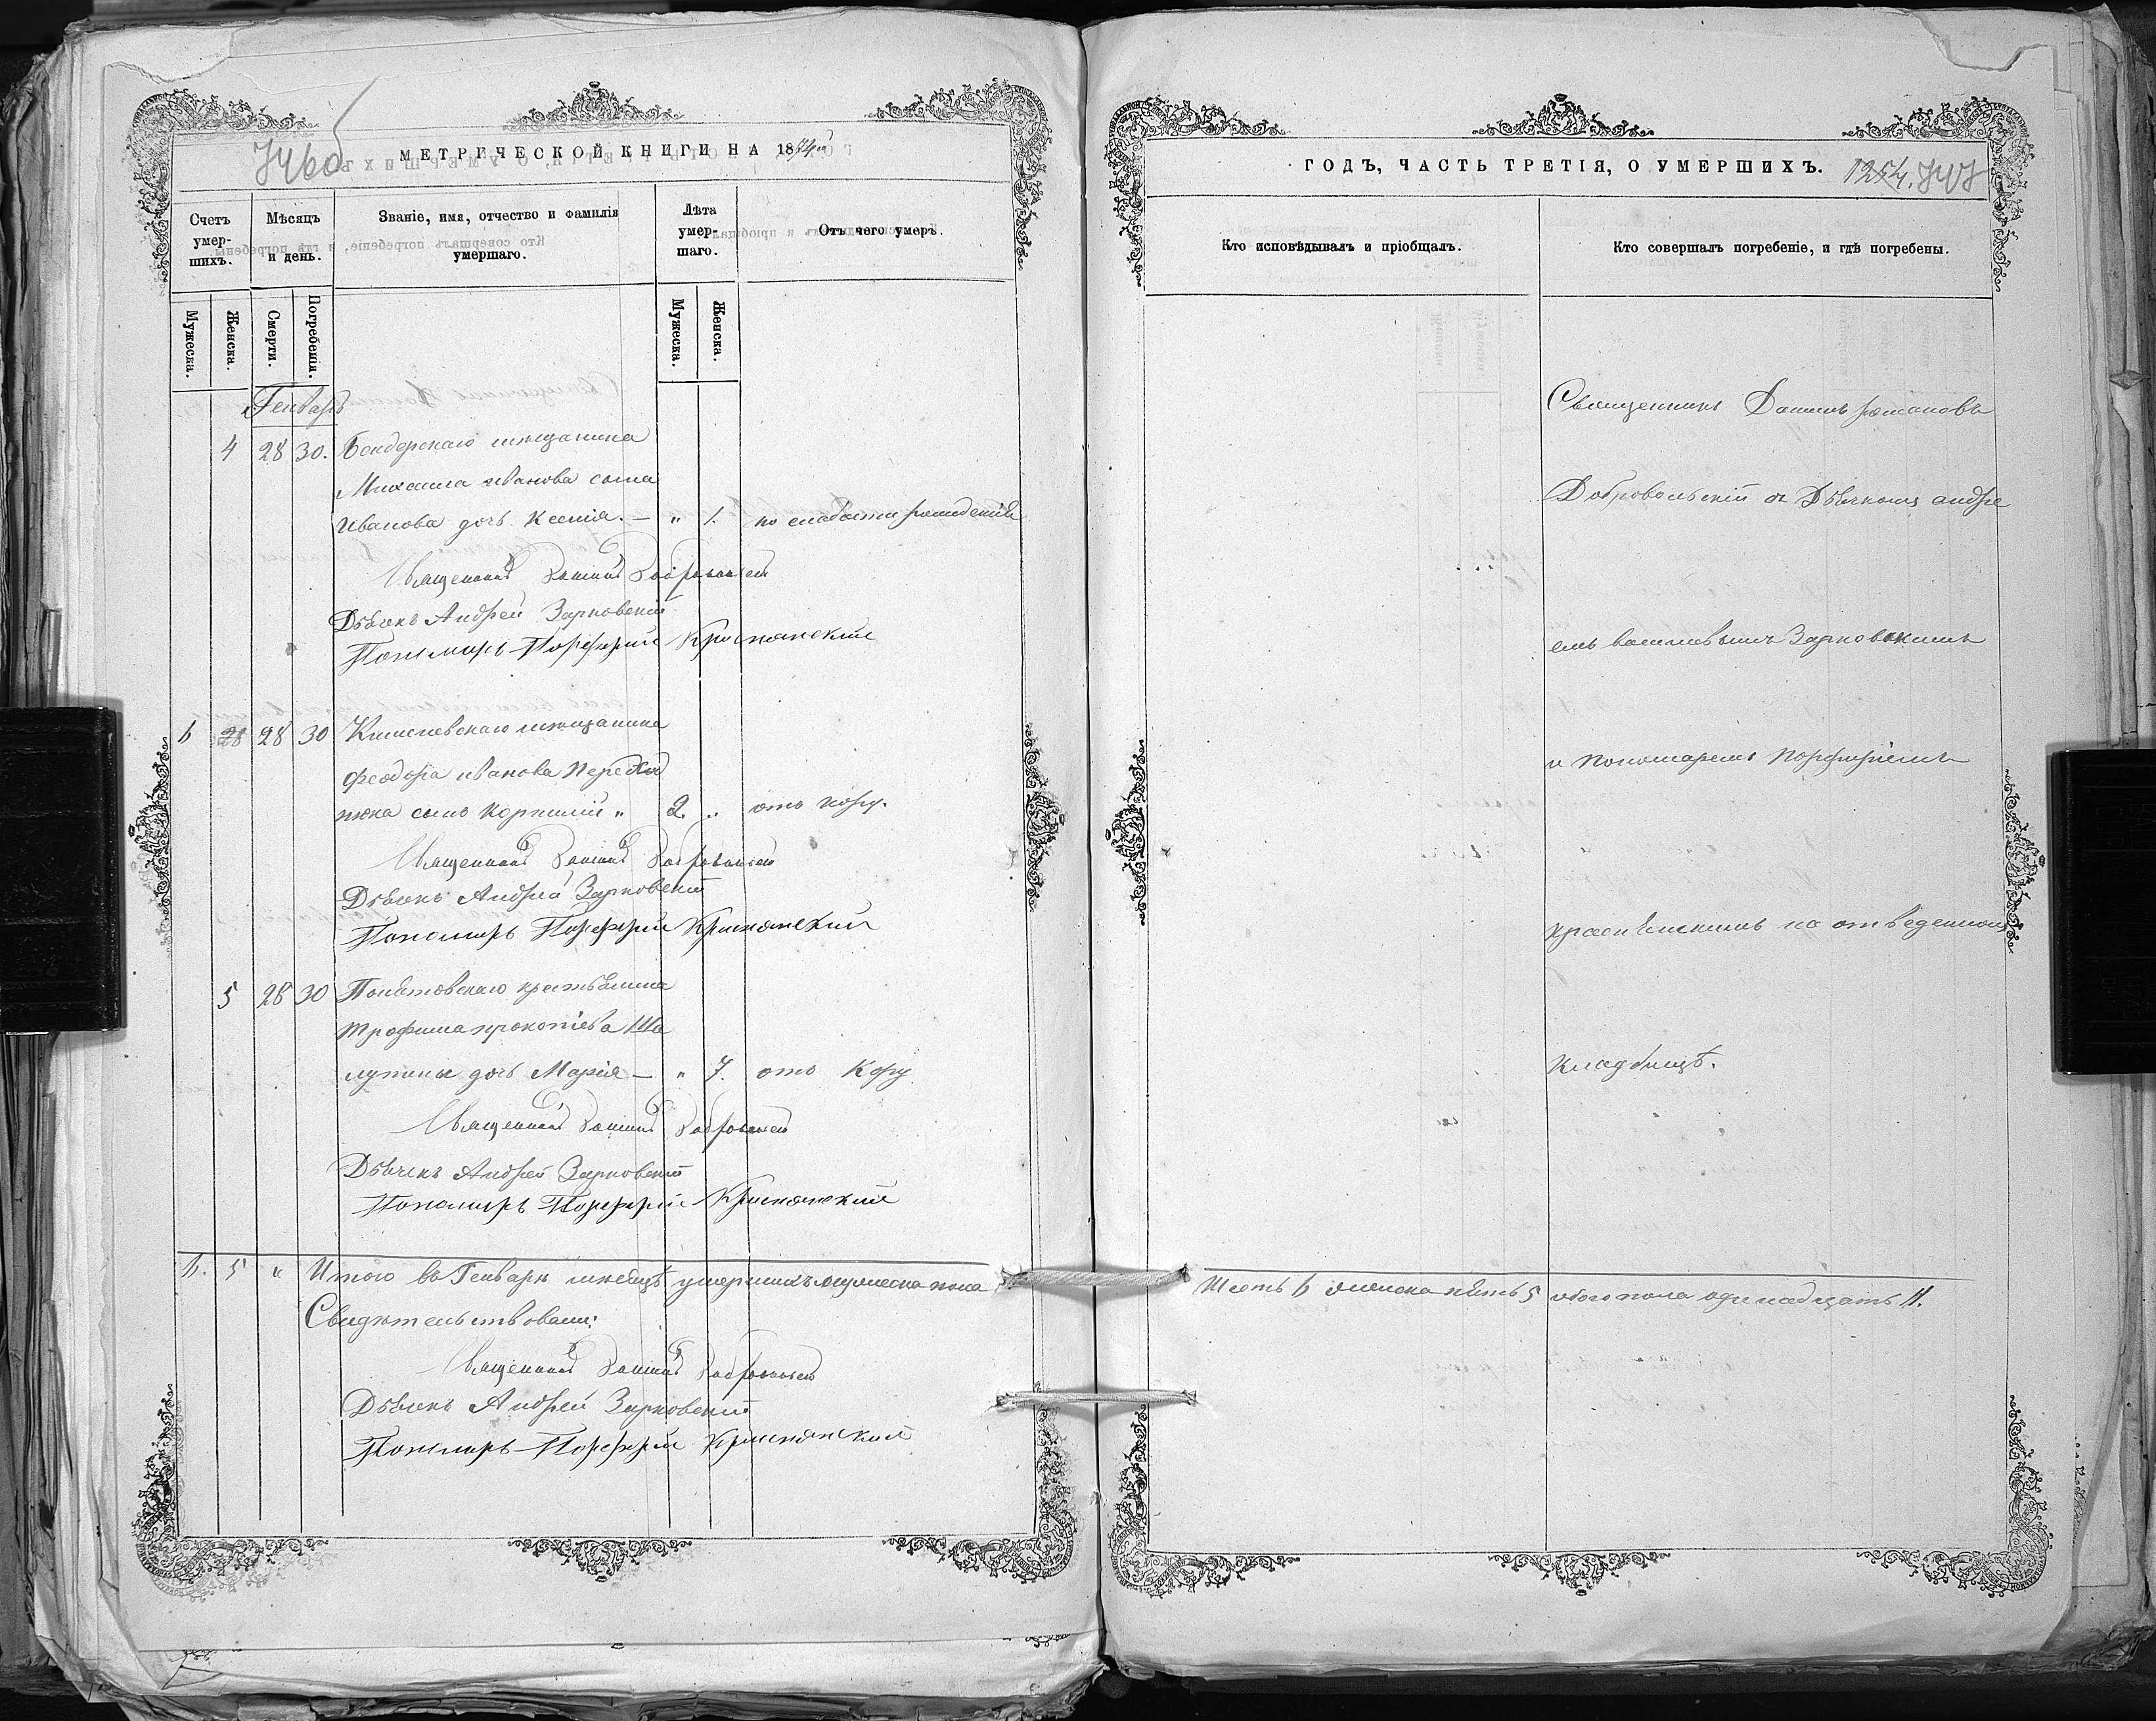 МЕТРИЧЕСКОЙ КНИГИ НА 1874й
Счетъ умер-шихъ.
Мѣсяцъ и день.
Званіе, имя, отчество и фамилія умершаго.
Лѣта умер-шаго.
Отъ чего умеръ.
Мужеска.
Женска.
Смерти.
Погребенія.
Мужеска.
Женска.
Генварь
4 28 30. Бендерскаго мѣщанина
Михаила иванова сына
Иванова дочь Ксенія. — " 1. по слабости рожденія
Священникъ Даніилъ Добровольскій
Дьячекъ Андрей Зарновскій
Пономарь Порфирій
6 28 28 30 Кишиневскаго мѣщанина
феодора иванова
сынъ Корнилій " 2. " отъ кору.
Священникъ Даніилъ Добровольскій
Дьячекъ Андрей Зарновскій
Пономарь Порфирій
5 28 30 крестьянина
Трофима прокопіева Ша
лупины дочь Марія — " 7. отъ Кору
Священникъ Даніилъ Добровольскій
Дьячекъ Андрей Зарновскій
Пономарь Порфирій
6. 5 " Итого въ Генварѣ мѣсяцѣ умершихъ мужеска пола
Свидѣтельствовали:
Священникъ Даніилъ Добровольскій
Дьячекъ Андрей Зарновскій
Пономарь Порфирій
ГОДЪ, ЧАСТЬ ТРЕТІЯ, О УМЕРШИХЪ. 1254.
Кто исповѣдывалъ и пріобщалъ.
Кто совершалъ погребеніе, и гдѣ погребены.
Священникъ Даніилъ романовъ
Добровольскій съ Дьячкомъ андре
емъ васильевымъ Зарновскимъ
и пономаремъ Порфиріемъ
на отведенномъ
кладбищѣ.
Шесть 6 женска пять 5 обоего пола одинадцать 11.